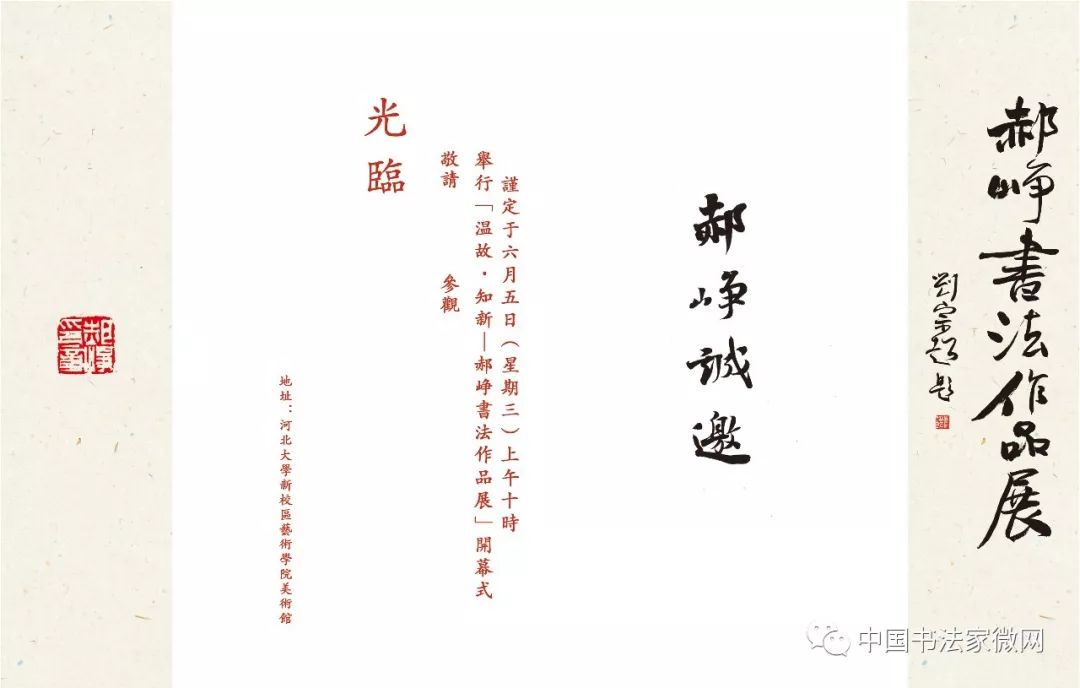 郝峥書法作品展
劉宗超題
郝峥誠邀
謹定于六月五日（星期三）上午十時
舉行「温故·知新—郝峥書法作品展」開幕式
敬請 參觀
光臨
地址：河北大學新校區藝術學院美術館
郝峥
中国书法家微网